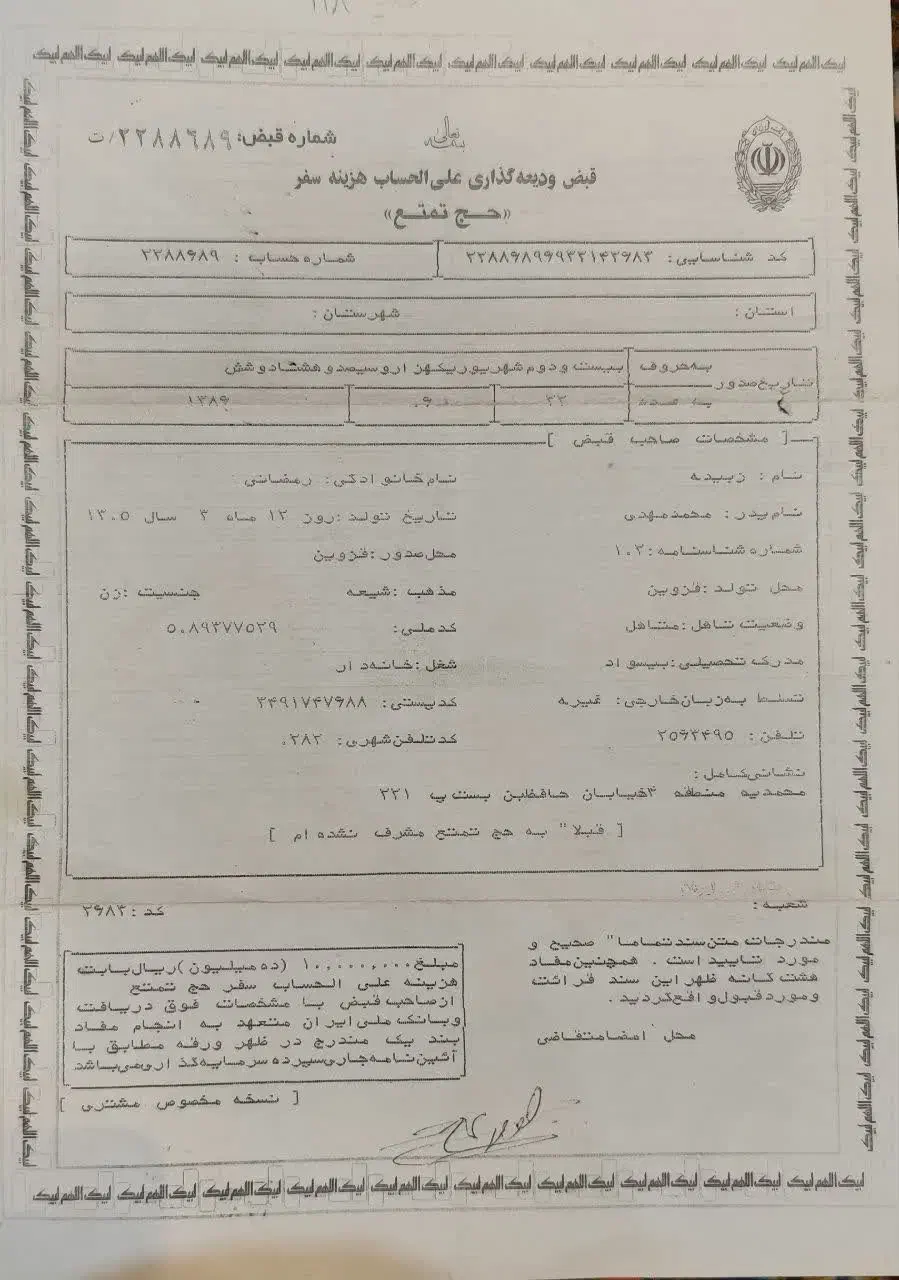 لبیک اللهم لبیک لبیک اللهم لبیک لبیک اللهم لبیک لبیک اللهم لبیک لبیک اللهم لبیک لبیک اللهم لبیک لبیک اللهم لبیک لبیک اللهم لبیک لبیک اللهم لبیک لبیک اللهم لبیک
بسمه تعالی
شماره قبض: ۲۲۸۸۶۸۹/ت
قبض ودیعه گذاری علی الحساب هزینه سفر
«حج تمتع»
کد شناسایی: ۲۲۸۸۶۸۹۹۹۳۲۱۴۲۶۸۳ شماره حساب : ۲۲۸۸۶۸۹
استان: شهرستان:
تاریخ صدور به حروف بیست و دوم شهریور یکهزاروسیصدوهشتادوشش
۲۲ ۰۶ ۱۳۸۶
[ مشخصات صاحب قبض ]
نام : زبیده نام خانوادگی: رمضانی
نام پدر: محمدمهدی تاریخ تولد :روز ۱۲ ماه ۳ سال ۱۳۰۵
شماره شناسنامه:۱۰۳ محل صدور :قزوین
محل تولد :قزوین مذهب :شیعه جنسیت :زن
وضعیت تاهل :متاهل کدملی: ۵۰۸۹۳۷۷۵۲۹
مدرک تحصیلی:بیسواد شغل :خانه دار
تسلط به زبان خارجی: غیره کدپستی: ۳۴۹۱۷۴۷۶۸۸
تلفن: ۲۵۶۳۴۹۵ کدتلفن شهری: ۰۲۸۲
نشانی کامل :
محمدیه منطقه ۴خیابان حافظ بن بست پ ۲۲۱
[ قبلا" به حج تمتع مشرف نشده ام ]
شعبه : کد :۲۶۸۳
مندرجات متن سند تماما" صحیح و
مورد تایید است . همچنین مفاد
هشت گانه ظهر این سند قرائت
و مورد قبول واقع گردید .
محل امضا متقاضی
مبلغ ۱۰,۰۰۰,۰۰۰ (ده میلیون)ریال بابت
هزینه علی الحساب سفر حج تمتع
از صاحب قبض با مشخصات فوق دریافت
و بانک ملی ایران متعهد به انجام مفاد
بند یک مندرج در ظهر ورقه مطابق با
آئین نامه جاری سپرده سرمایه گذاری می باشد
[ نسخه مخصوص مشتری ]
لبیک اللهم لبیک لبیک اللهم لبیک لبیک اللهم لبیک لبیک اللهم لبیک لبیک اللهم لبیک لبیک اللهم لبیک لبیک اللهم لبیک لبیک اللهم لبیک لبیک اللهم لبیک لبیک اللهم لبیک